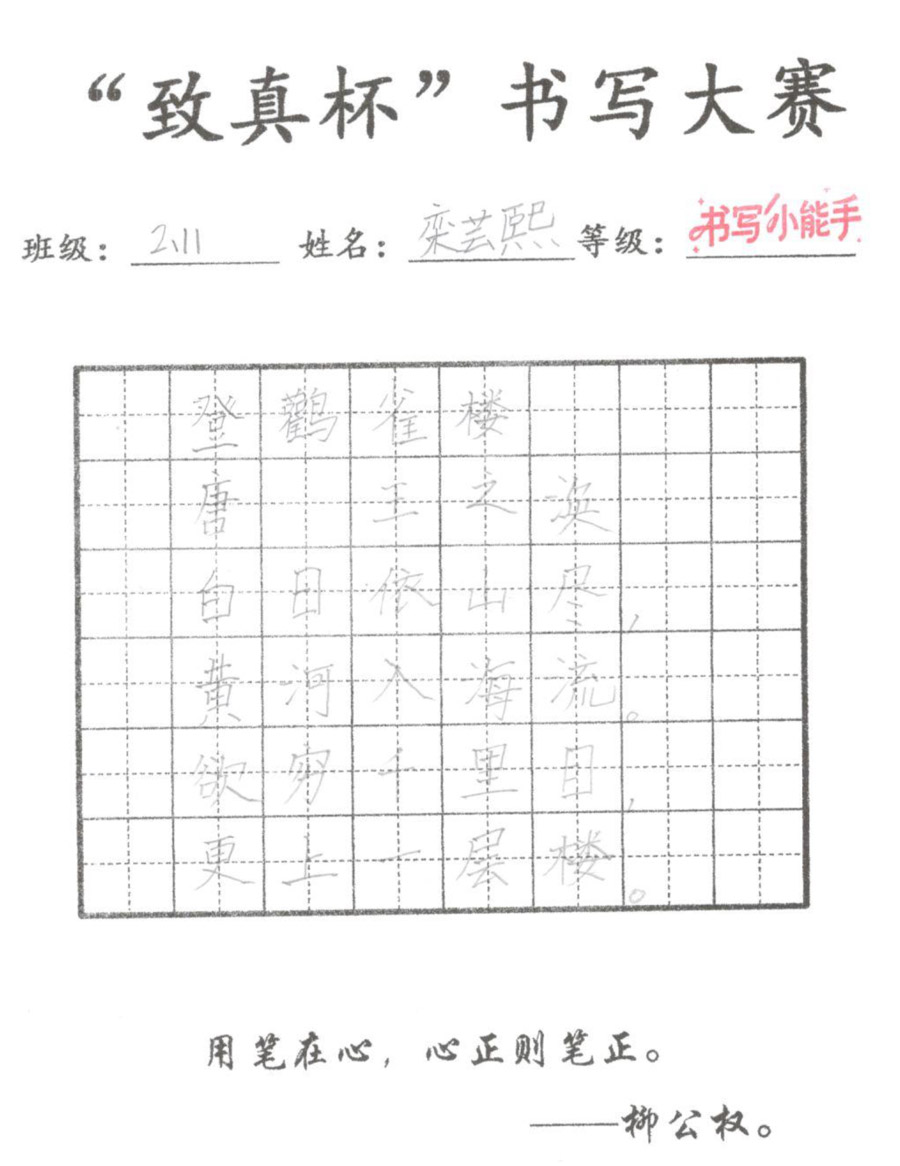 “致真杯”书写大赛
班级：2.11 姓名：栾芸熙 等级：书写小能手
登鹳雀楼
唐 王之涣
白日依山尽，
黄河入海流。
欲穷千里目，
更上一层楼。
用笔在心，心正则笔正。
——柳公权。